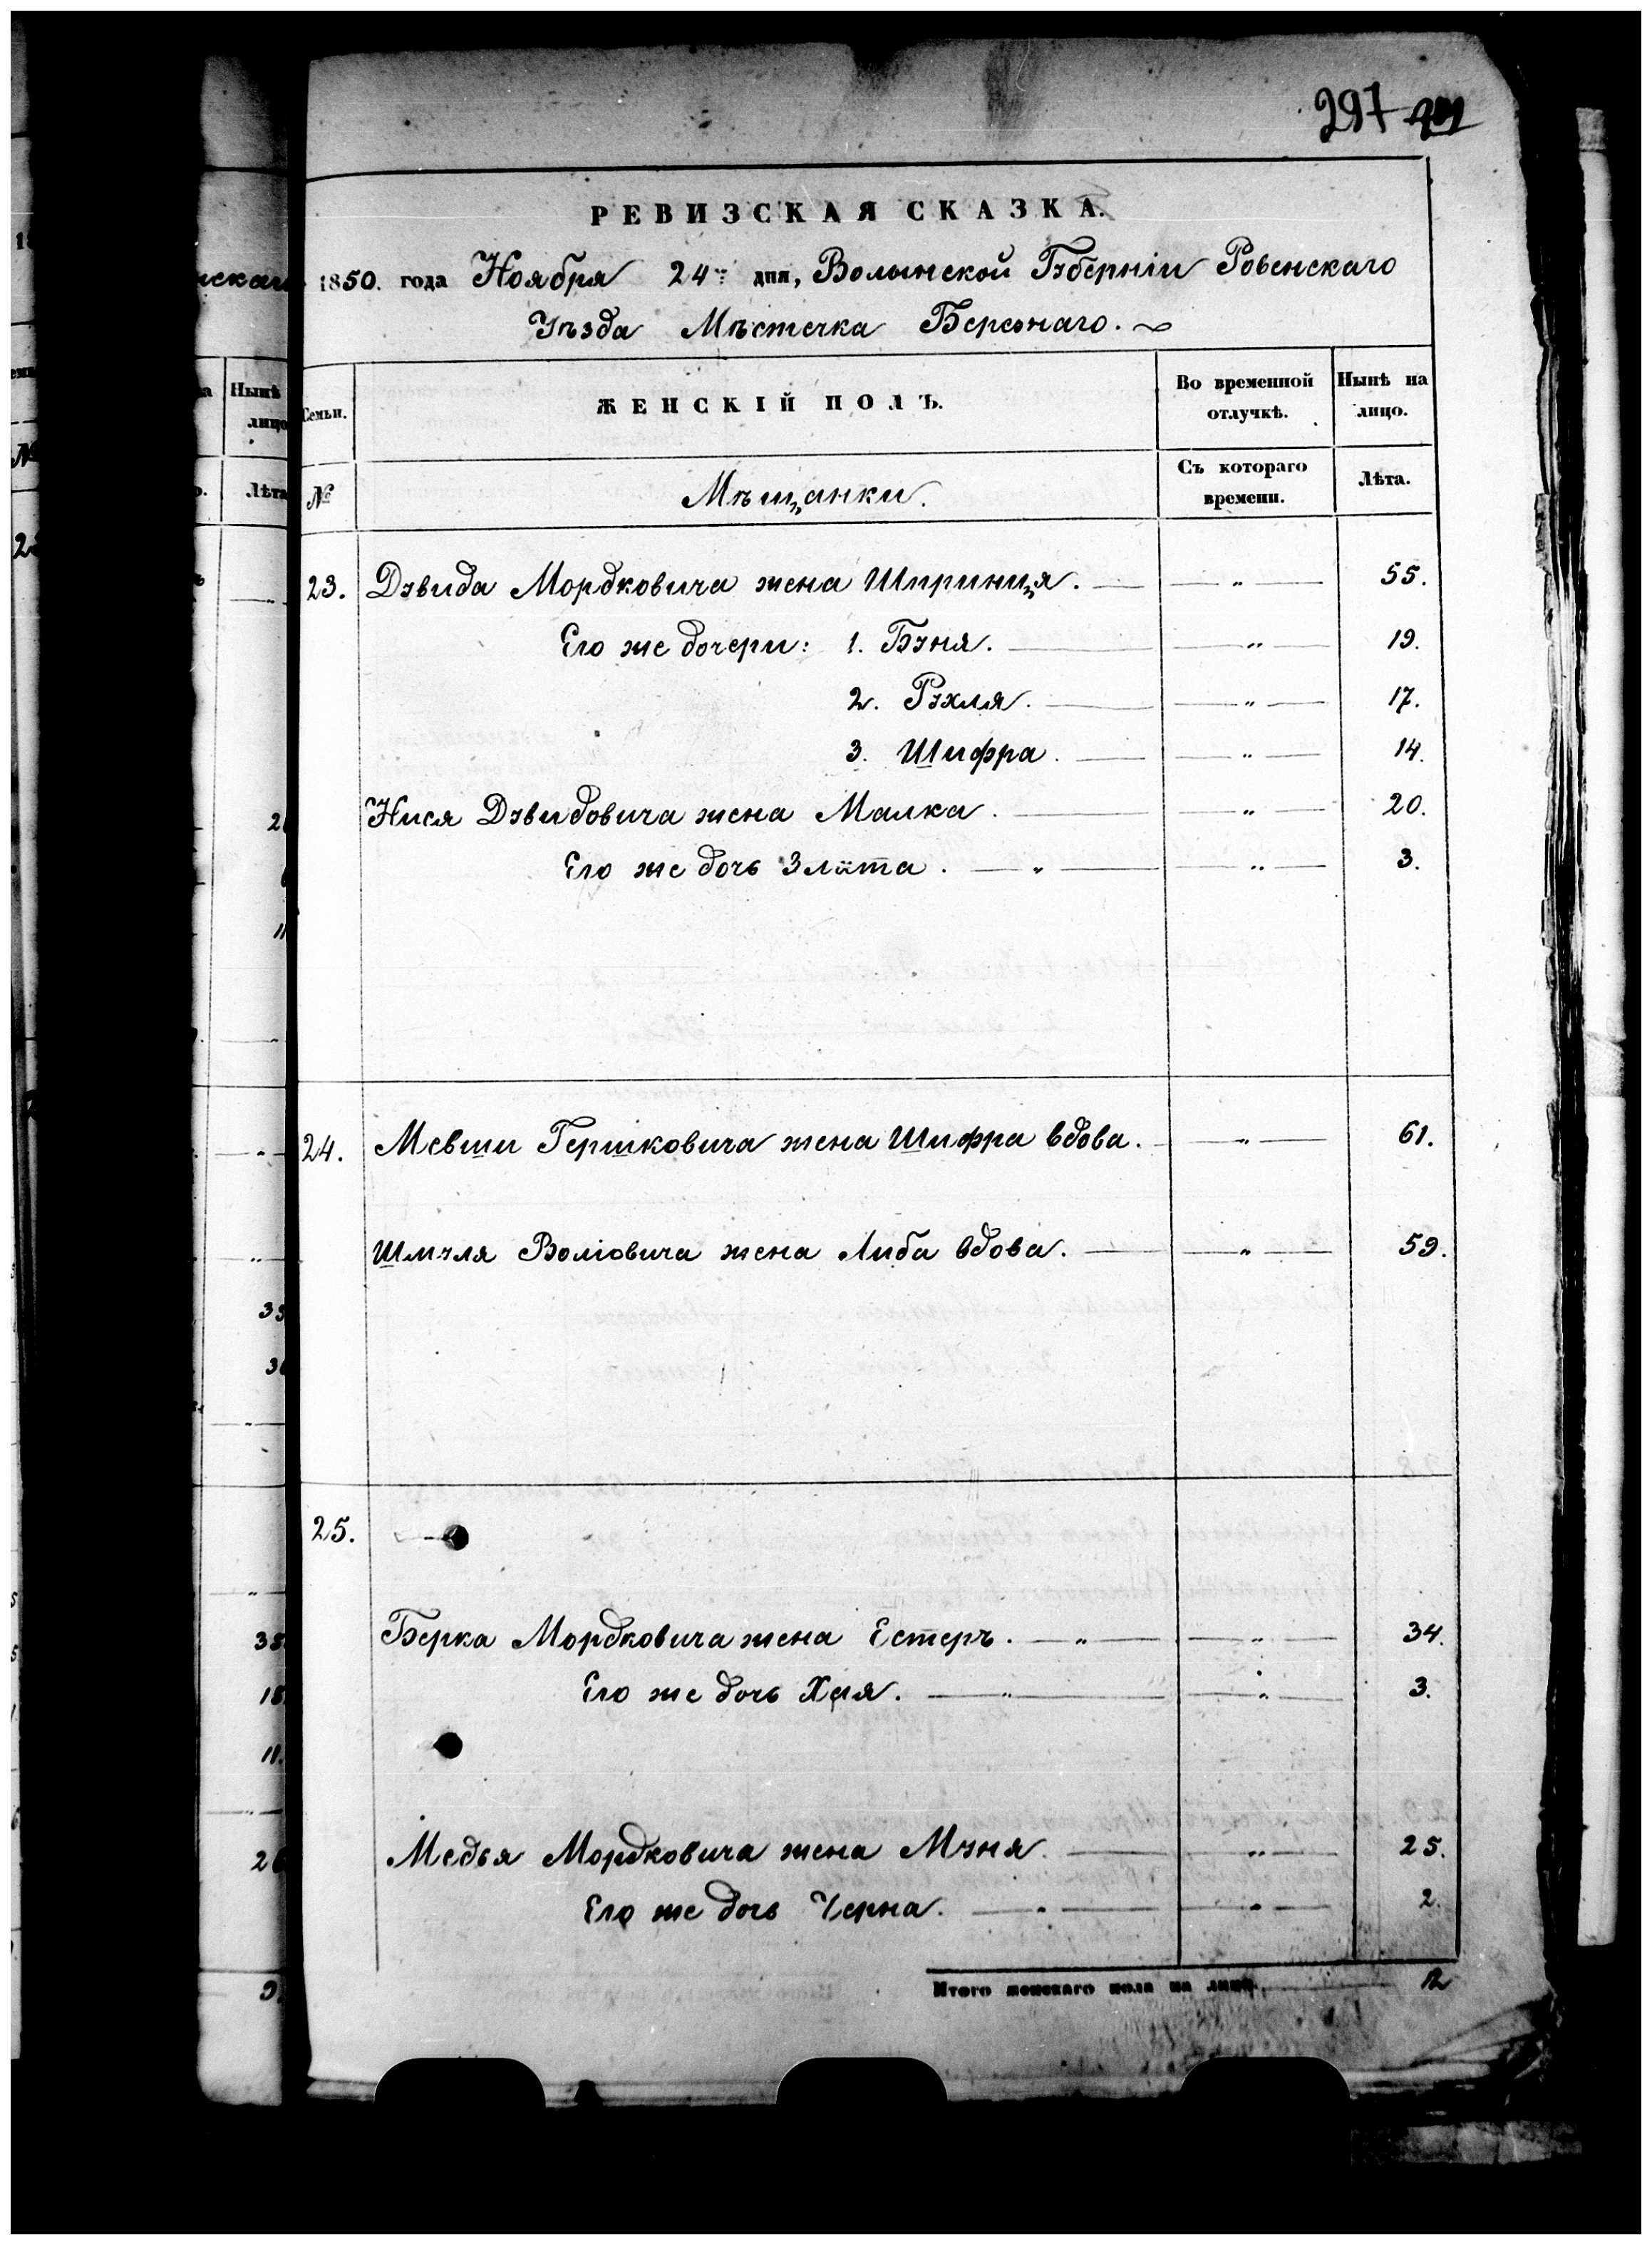 297
РЕВИЗСКАЯ СКАЗКА.
1850. года Ноября 24го дня, Волынской Губерніи Ровенскаго
Уѣзда Мѣстечка Березнаго.
Семьи. ЖЕНСКІЙ ПОЛЪ. Во временной отлучкѣ. Нынѣ на лицо.
№ Мѣщанки. Съ котораго времени. Лѣта.
23. Дувида Мордковича жена Шпринця. — „ — 55.
Его же дочери: 1. Буня. — „ — 19.
2. Рухля. — „ — 17.
3. Шифра. — „ — 14.
Нися Дувидовича жена Малка. — „ — 20.
Его же дочь Злата. — „ — „ — 3.
24. Мевши Гершковича жена Шифра вдова. — „ — 61.
Шмуля Волковича жена Либа вдова. — „ — 59.
25.
Берка Мордковича жена Естеръ. — „ — „ — 34.
Его же дочь Хая. — „ — „ — 3.
Медья Мордковича жена Муня. — „ — 25.
Его же дочь Черна. — „ — „ — 2.
Итого женскаго пола на лицо 12
Нынѣ
лицо
Лѣта